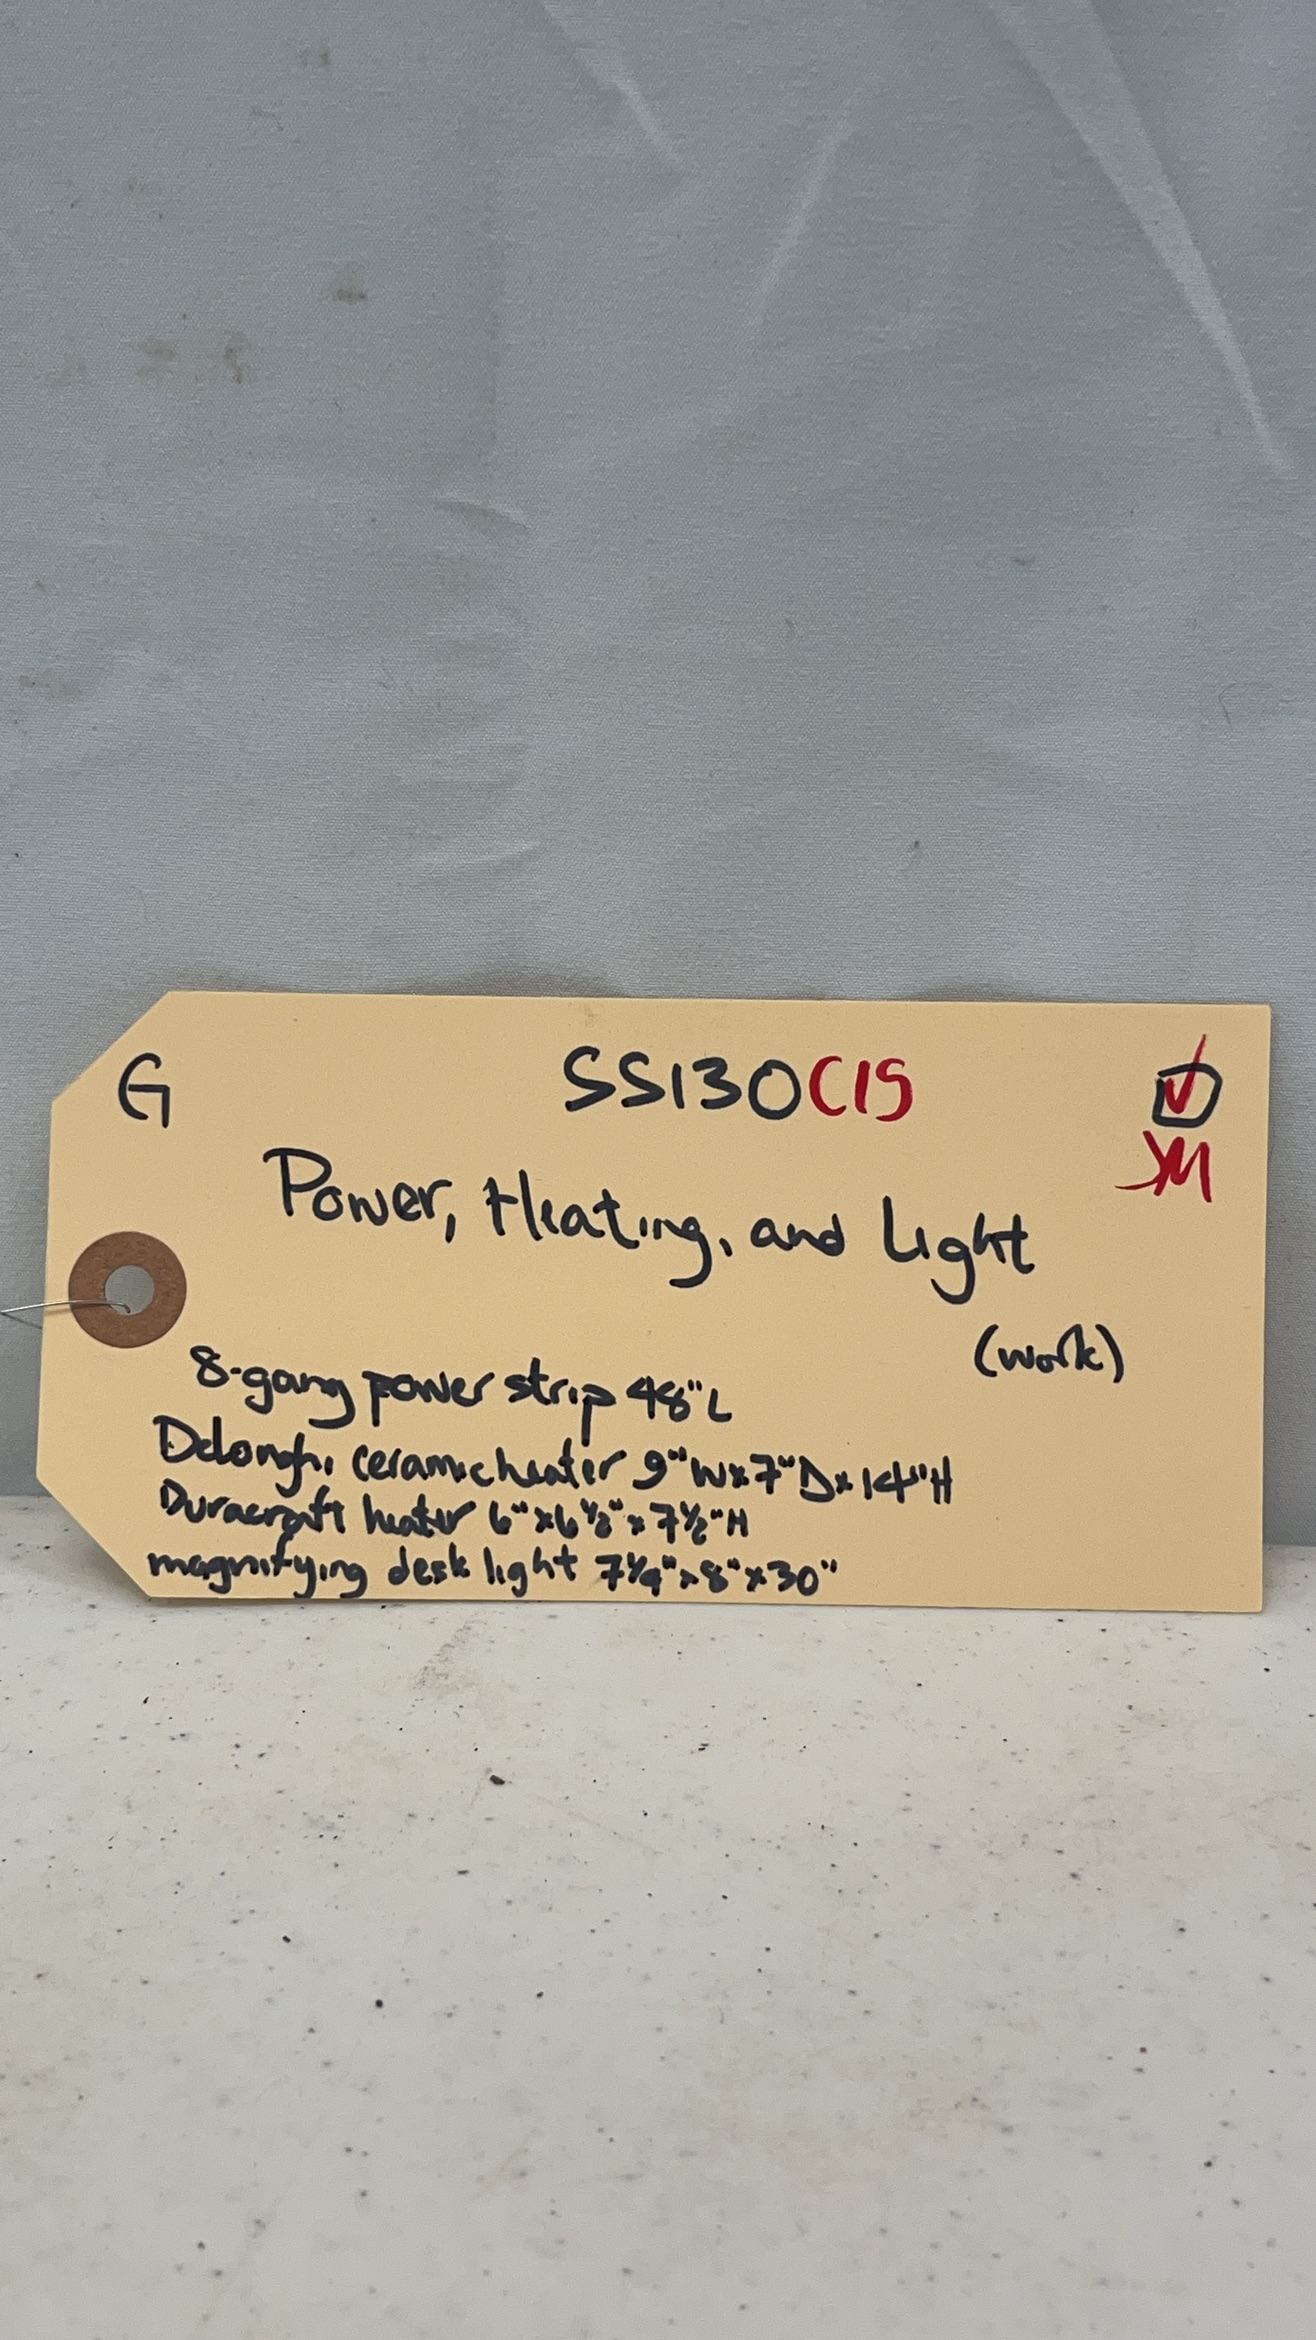 G SS130C15 ✓
JM
Power, Heating, and Light
(work)
8-gang power strip 48"L
Delonghi ceramic heater 9"W x 7"D x 14"H
Duracraft heater 6" x 6½" x 7½"H
magnifying desk light 7¼" x 8" x 30"